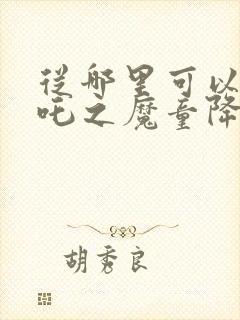 從哪里可以
吒之魔童降
胡秀良